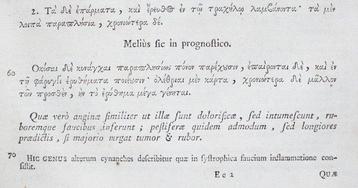 2. Τὰ δὲ ἐπάρματα, καὶ ἐρευθέα ἐν τῷ τραχήλῳ λαμβάνοντα τὰ μὲν
λοιπὰ παραπλήσια, χρονιώτερα δέ.
Meliùs sic in prognostico.
60 Ὁκόσαι δὲ κυνάγχαι παραπλησίως πόνον παρέχουσιν, ἐπαίρονται δὲ, καὶ ἐν
τῷ φάρυγγι ἐρυθήματα ποιέουσιν· ὀλέθριαι μὲν κάρτα, χρονιώτεραι δὲ μᾶλλον
τῶν πρόσθεν, ἢν τὸ ἐρύθημα μέγα γένηται.
Quæ verò anginæ similiter ut illæ sunt dolorificæ, sed intumescunt, ru-
boremque faucibus inferunt, pestiferæ quidem admodum, sed longiores
prædictis, si majorio nrgat tumor & rubor.
70 HIC GENUS alterum cynanches describitur quæ in systrophica faucium inflammatione con-
sistit.
E e 2 QUÆ